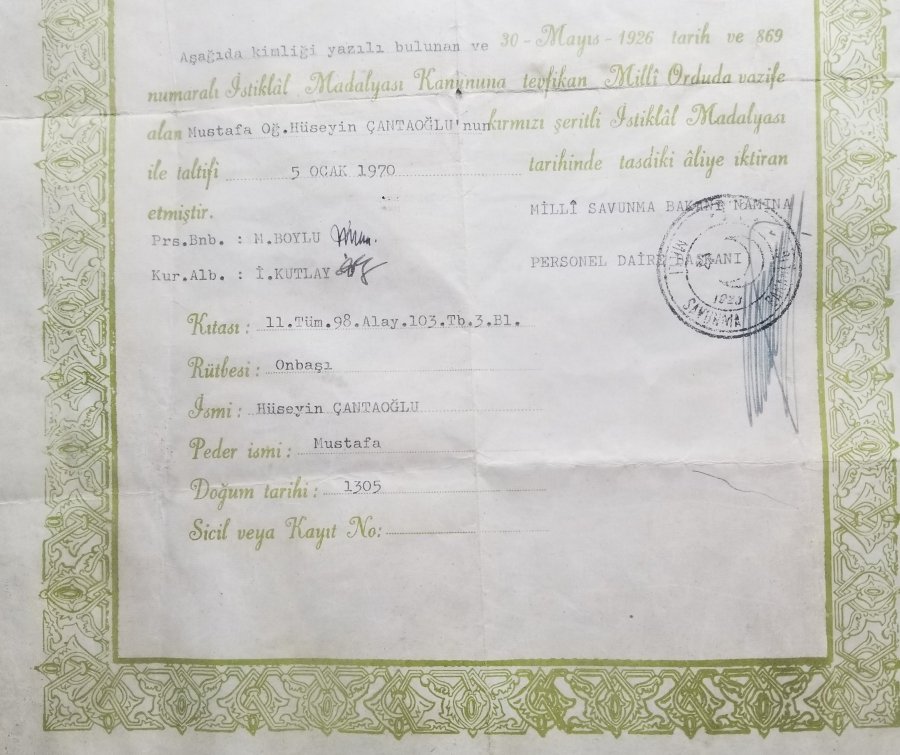 Aşağıda kimliği yazılı bulunan ve 30 - Mayıs - 1926 tarih ve 869
numaralı İstiklâl Madalyası Kanununa tevfikan Millî Orduda vazife
alan Mustafa Oğ.Hüseyin ÇANTAOĞLU'nun kırmızı şeritli İstiklâl Madalyası
ile taltifi 5 OCAK 1970 tarihinde tasdiki âliye iktiran
etmiştir.
MİLLÎ SAVUNMA BAKANI NAMINA
Prs.Bnb. : M.BOYLU
PERSONEL DAİRE BAŞKANI
Kur.Alb. : İ.KUTLAY
1923
SAVUNMA
Kıtası : 11.Tüm.98.Alay.103.Tb.3.Bl.
Rütbesi : Onbaşı
İsmi : Hüseyin ÇANTAOĞLU
Peder ismi : Mustafa
Doğum tarihi : 1305
Sicil veya Kayıt No: